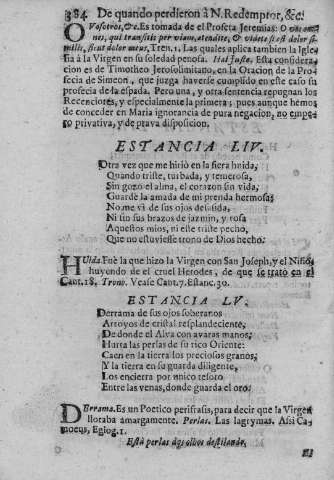 384. De quando perdieron à N. Redemptor, &c.
O Vosotros, &c. Es tomada de el Profeta Jeremias: O vos omnes, qui transitis per viam, attendite, & videte si est dolor similis, sicut dolor meus, Tren. 1. Las quales aplica tambien la Iglesia à la Virgen en su soledad penosa. Ital Justa. Esta consideracion es de Timotheo Jerosolimitano, en la Oracion de la Profecia de Simeon, que juzga haverse cumplido en este caso su profecia de la espada. Pero una, y otra sentencia repugnan los Recenciores, y especialmente la primera; pues aunque hèmos de conceder en Maria ignorancia de pura negacion, no empero privativa, y de prava disposicion.
ESTANCIA LIV.
Otra vez que me hiriò en la fiera huida,
Quando triste, turbada, y temerosa,
Sin gozo el alma, el corazon sin vida,
Guardè la amada de mi prenda hermosa;
No me vì de sus ojos desasida,
Ni sin sus brazos de jazmin, y rosa
Aquestos mios, ni este triste pecho,
Que no estuviesse trono de Dios hecho.
HUida. Fuè la que hizo la Virgen con San Joseph, y el Niño, huyendo de el cruel Herodes, de que se tratò en el Cant. 18. Trono. Vease Cant. 7. Estanc. 30.
ESTANCIA LV.
Derrama de sus ojos soberanos
Arroyos de cristal resplandeciente,
De donde el Alva con avaras manos,
Hurta las perlas de su rico Oriente:
Caen en la tierra los preciosos granos,
Y la tierra en su guarda diligente,
Los encierra por unico tesoro
Entre las venas, donde guarda el oro.
DErrama. Es un Poetico perifrasis, para decir que la Virgen lloraba amargamente. Perlas. Las lagrymas. Assi Camoeus, Eglog. 1.
Està perlas dos olhos destilando.